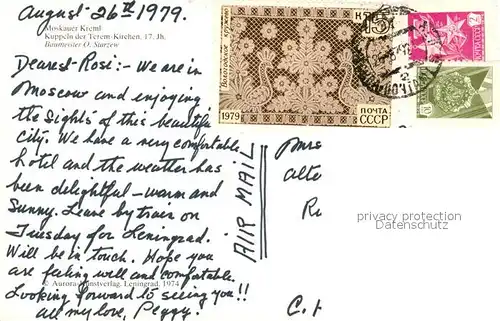 August 26th 1979.
Moskauer Kreml
Kuppeln der Terem-Kirchen, 17. Jh.
Baumeister O. Starzew
Dearest Rosi:- We are in
Moscow and enjoying
the sights of this beautiful
city. We have a very comfortable
hotel and the weather has
been delightful - warm and
sunny. Leave by train on
Tuesday for Leningrad.
Will be in touch. Hope you
are feeling well and comfortable.
© Aurora-Kunstverlag, Leningrad, 1974
Looking forward to seeing you!!
all my love, Peggy.
AIR MAIL
15 К
1979
ПОЧТА
СССР
Mrs
Alte
Ri
privacy protection
watermark
C.H